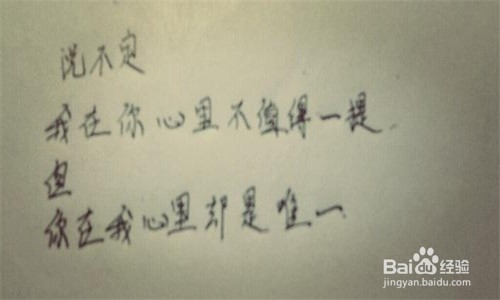 说不定
我在你心里不值得一提.
但
你在我心里却是唯一
Baidu经验
jingyan.baidu.com